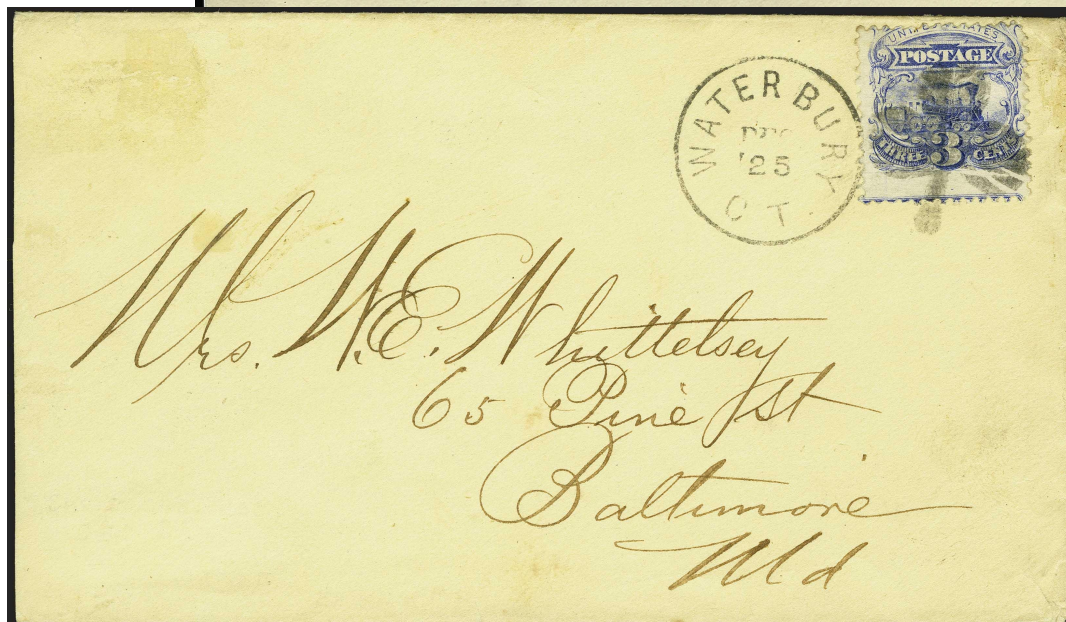 UNITED STATES
POSTAGE
THREE 3 CENTS
WATERBURY
DEC
'25
CT
Mrs. W. E. Whittelsey
65 Pine St
Baltimore
Md